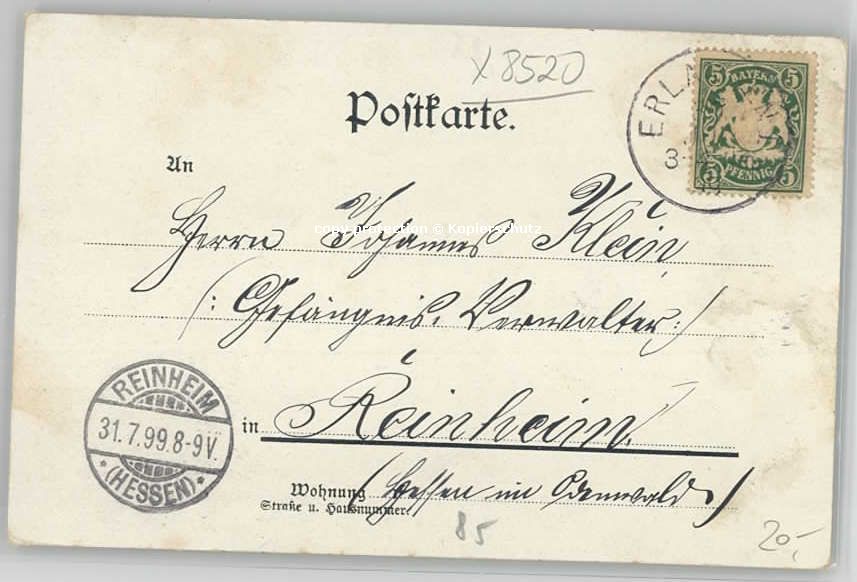 X 8520
Postkarte.
5 BAYERN 5
5 PFENNIG 5
An
Herrn Johannes Klein
copy protection © Kopierschutz
(: Gefängnis-Verwalter :)
REINHEIM
31.7.99.8-9V.
* (HESSEN) *
in Reinheim.
Wohnung (Hessen im Odenwald)
Straße u. Hausnummer
85
20,-